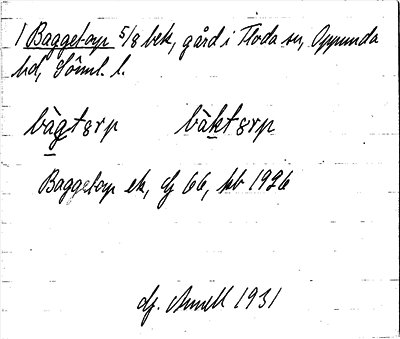 1 Baggetorp 5/8 bek, gård i Floda sn, Oppunda
hd, Söml. l.
bàgtərp bàktərp
Baggetorp ek, dj 66, kb 1926
dj. Annell 1931